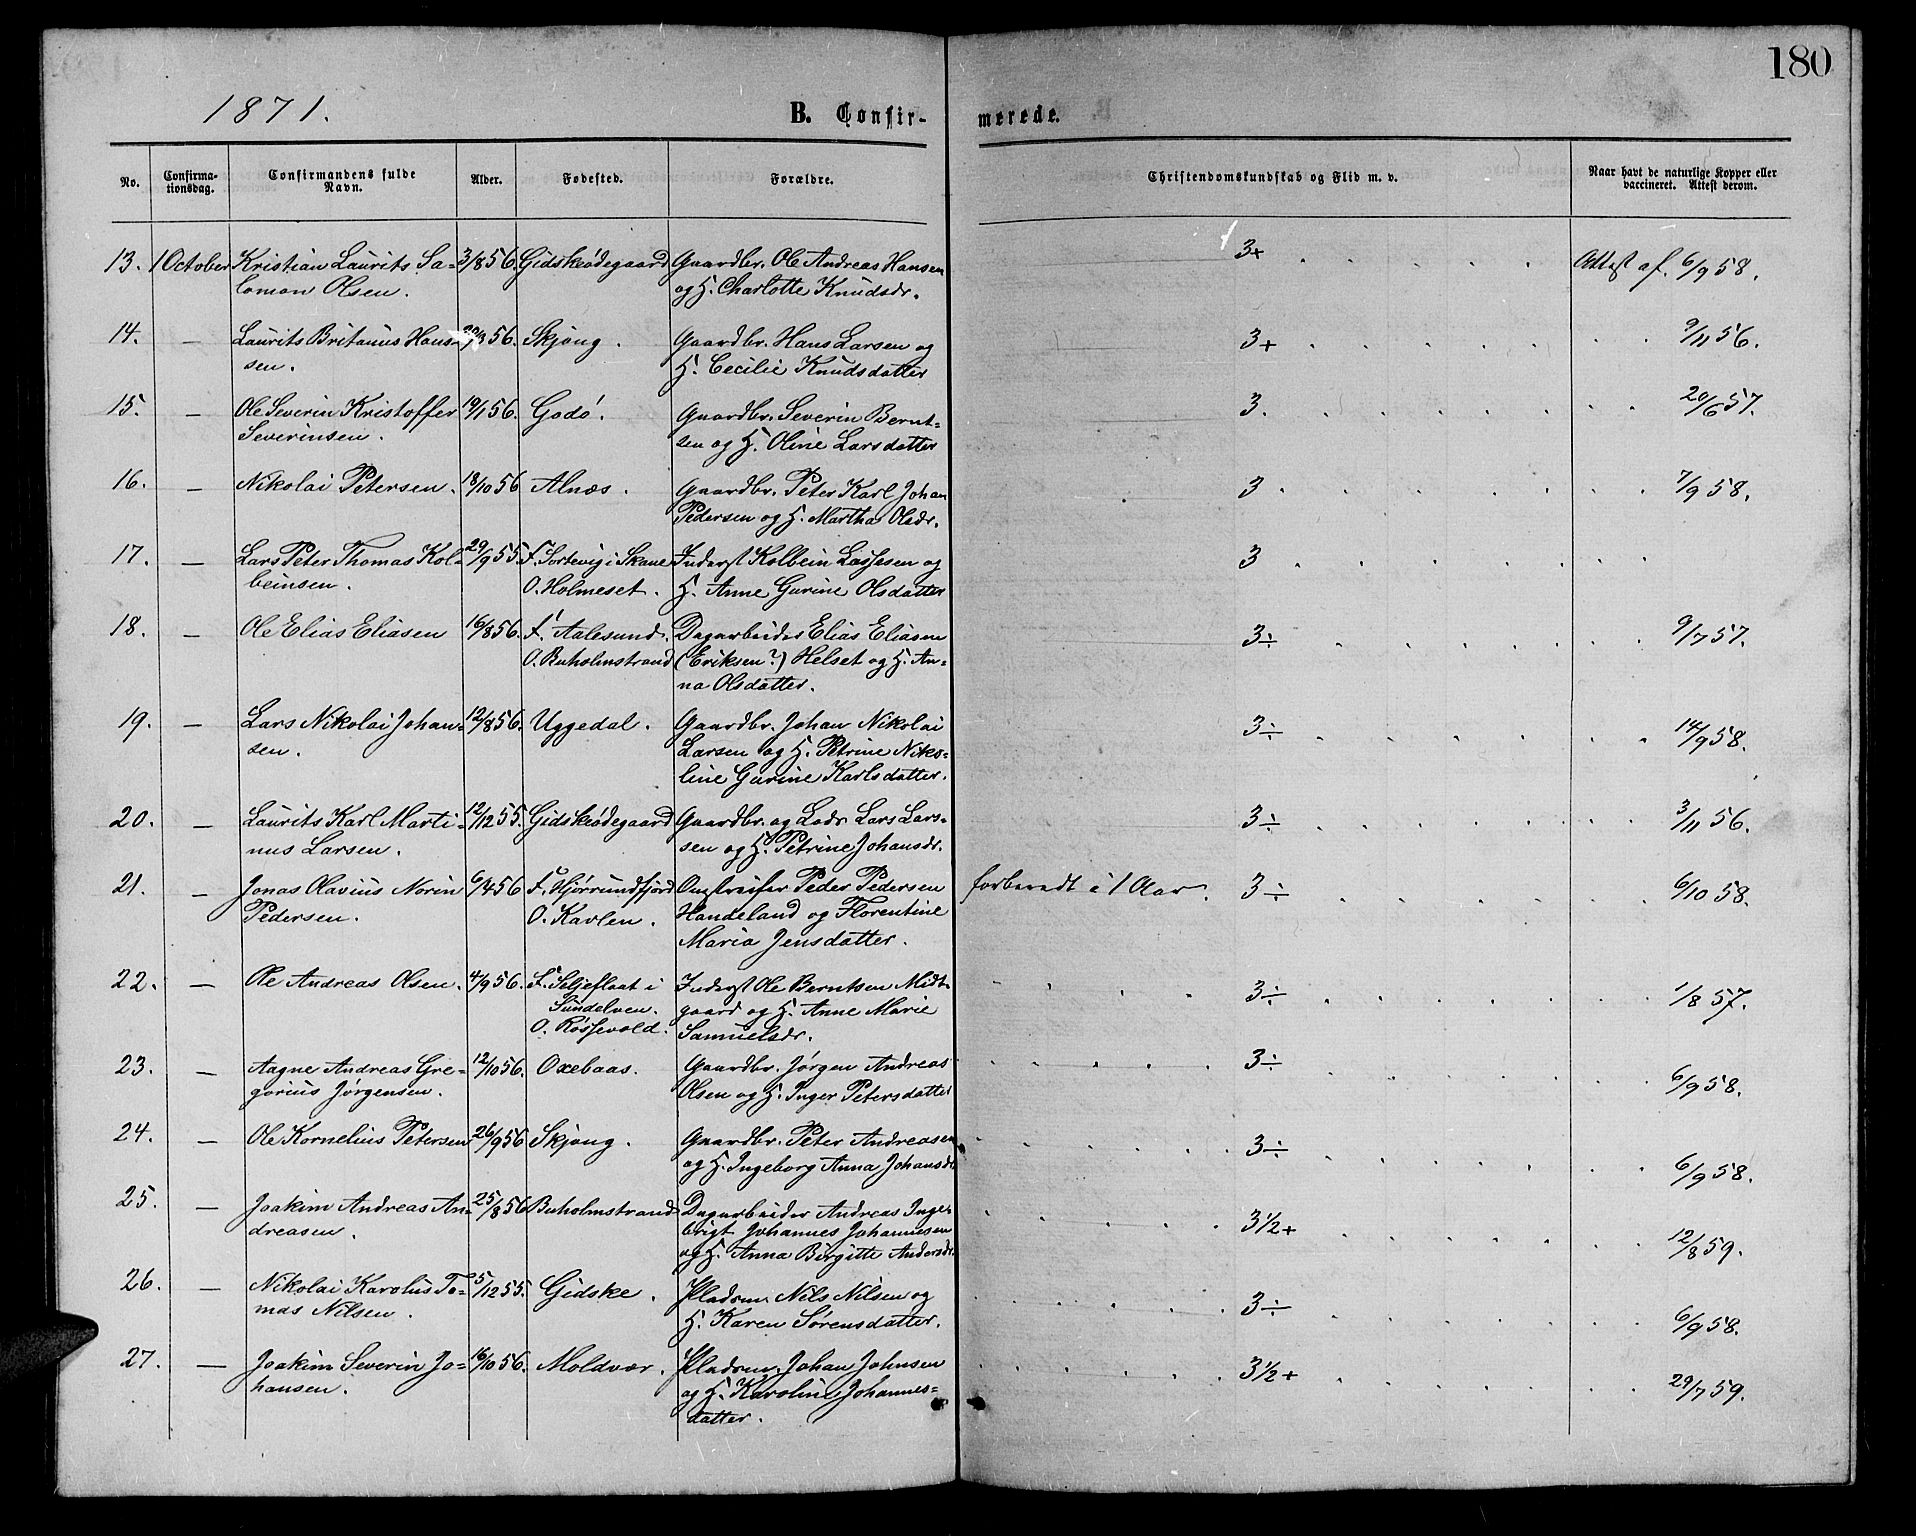 180
1871.
B. Confir-
merede.
No.
Confirma-
tionsdag.
Confirmandens fulde
Navn.
Alder.
Fødested.
Forældre.
Christendomskundskab og Flid m. v.
Naar havt de naturlige Kopper eller
vaccineret. Attest derom.
13. 1 October Kristian Laurits Sa- 3/8 56. Gidskeødegaard Gaardbr. Ole Andreas Hansen 3+ Attest af 6/9 58.
lomon Olsen. og H. Charlotte Knudsdr.
14. — Laurits Britanus Han- 56. Skjong. Gaardbr. Hans Larsen og 3+ 9/11 56.
sen. H. Cecilie Knudsdatter
15. — Ole Severin Kristoffer 19/1 56. Godø. Gaardbr. Severin Bernt- 3. 20/6 57.
Severinsen. sen og H. Oline Larsdatter
16. — Nikolai Petersen. 18/10 56 Alnæs. Gaardbr. Peter Karl Johan 3 7/9 58.
Pedersen og H. Martha Olsdr.
17. — Lars Peter Thomas Kol- 29/9 55. F. Sortevig i Skaue Inderst Kolbein Lassesen og 3
beinsen. O. Holmeset. H. Anne Gurine Olsdatter
18. — Ole Elias Eliasen 16/8 56. F. Aalesund. Dagarbeider Elias Eliasen 3÷ 9/7 57.
O. Buholmstrand (Eriksen?) Helset og H. An-
na Olsdatter.
19. — Lars Nikolai Johan- 12/8 56. Uggedal. Gaardbr. Johan Nikolai 3÷ 14/9 58.
sen. Larsen og H. Petrine Niko-
line Gurine Karlsdatter.
20. — Laurits Karl Marti- 12/12 55. Gidskeødegaard Gaardbr. og Lods Lars Lars- 3÷ 3/11 56.
nus Larsen. sen og H. Petrine Johansdr.
21. — Jonas Olavius Norin 6/4 56 F. Hjørrundfjord Peder Pedersen forberedt i 1 Aar. 3÷ 6/10 58.
Pedersen. O. Kavlen. Handeland og Florentine
Maria Jensdatter.
22. — Ole Andreas Olsen. 4/9 56. F. Seljeflaat i Inderst Ole Berntsen Midt- 3÷ 1/8 57.
Sundelven. gaard og H. Anne Marie
O. Røssevold. Samuelsdr.
23. — Aagne Andreas Gre- 12/10 56. Oxebaas. Gaardbr. Jørgen Andreas 3÷ 6/9 58.
gorius Jørgensen. Olsen og H. Inger Petersdatter
24. — Ole Kornelius Petersen 26/9 56 Skjong. Gaardbr. Peter Andreasen 3÷ 6/9 58.
og H. Ingeborg Anna Johansdr.
25. — Joakim Andreas An- 25/8 56 Buholmstrand Dagarbeider Andreas Inge- 3½+ 12/8 59.
dreasen. brigt Johannes Johannesen
og H. Anna Birgitte Andersdr.
26. — Nikolai Karolus To- 5/12 55. Gidske. Pladsm. Nils Nilsen og 3÷ 6/9 58.
mas Nilsen. H. Karen Sørensdatter.
27. — Joakim Severin Jo- 16/10 56. Moldvær. Pladsm. Johan Johnsen 3½+ 29/7 59.
hansen. og H. Karoline Johannes-
datter.